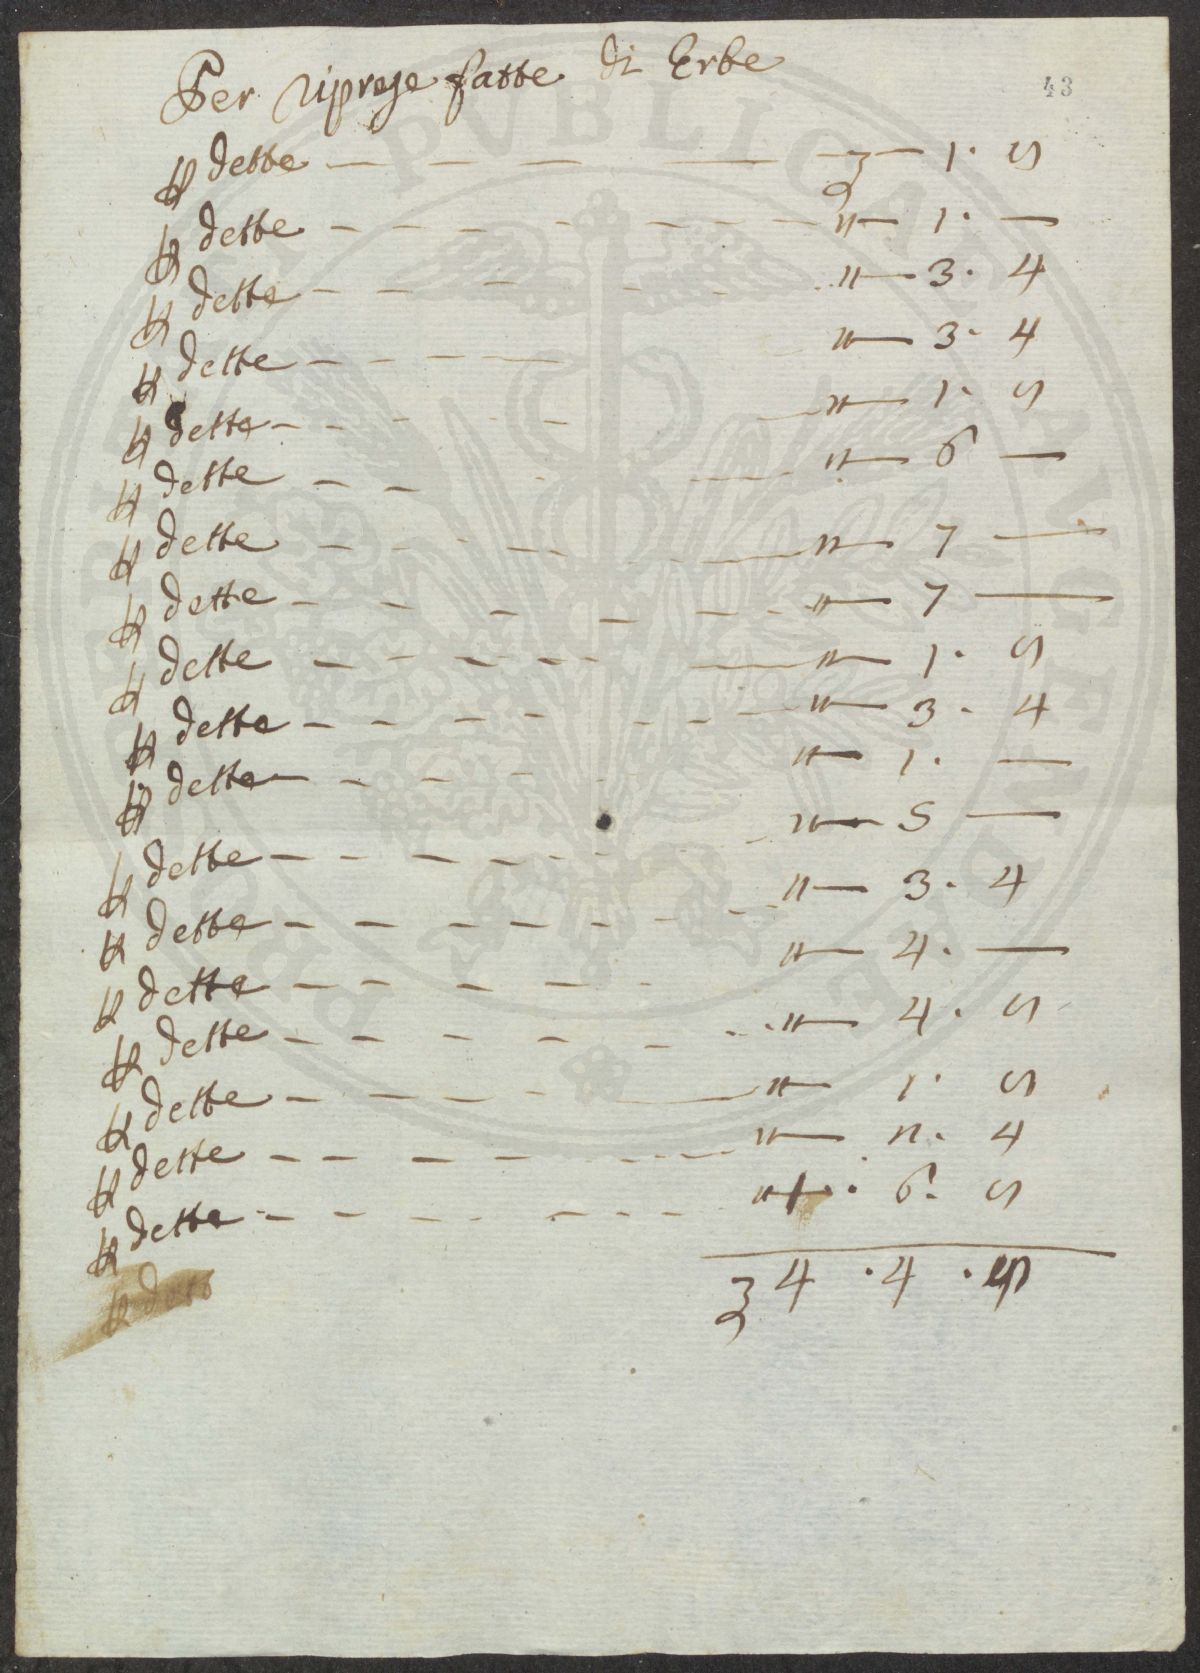 Per riprese fatte di Erbe
43
⅌ dette — — — — — ʒ — 1. S
⅌ dette — — — — — " — 1. —
⅌ dette — — — — — " — 3. 4
⅌ dette — — — — — " — 3. 4
⅌ dette — — — — — " — 1. S
⅌ dette — — — — — " — 6 —
⅌ dette — — — — — " — 7 —
⅌ dette — — — — — " — 7 —
⅌ dette — — — — — " — 1. S
⅌ dette — — — — — " — 3. 4
⅌ dette — — — — — " — 1. —
⅌ dette — — — — — " — 5 —
⅌ dette — — — — — " — 3. 4
⅌ dette — — — — — " — 4. —
⅌ dette — — — — — " — 4. S
⅌ dette — — — — — " — 1. S
⅌ dette — — — — — " — n. 4
⅌ dette — — — — — " . 6. S
ʒ 4 . 4 .
⅌ dett
PROSPERITATI PVBLICAE AVGENDAE